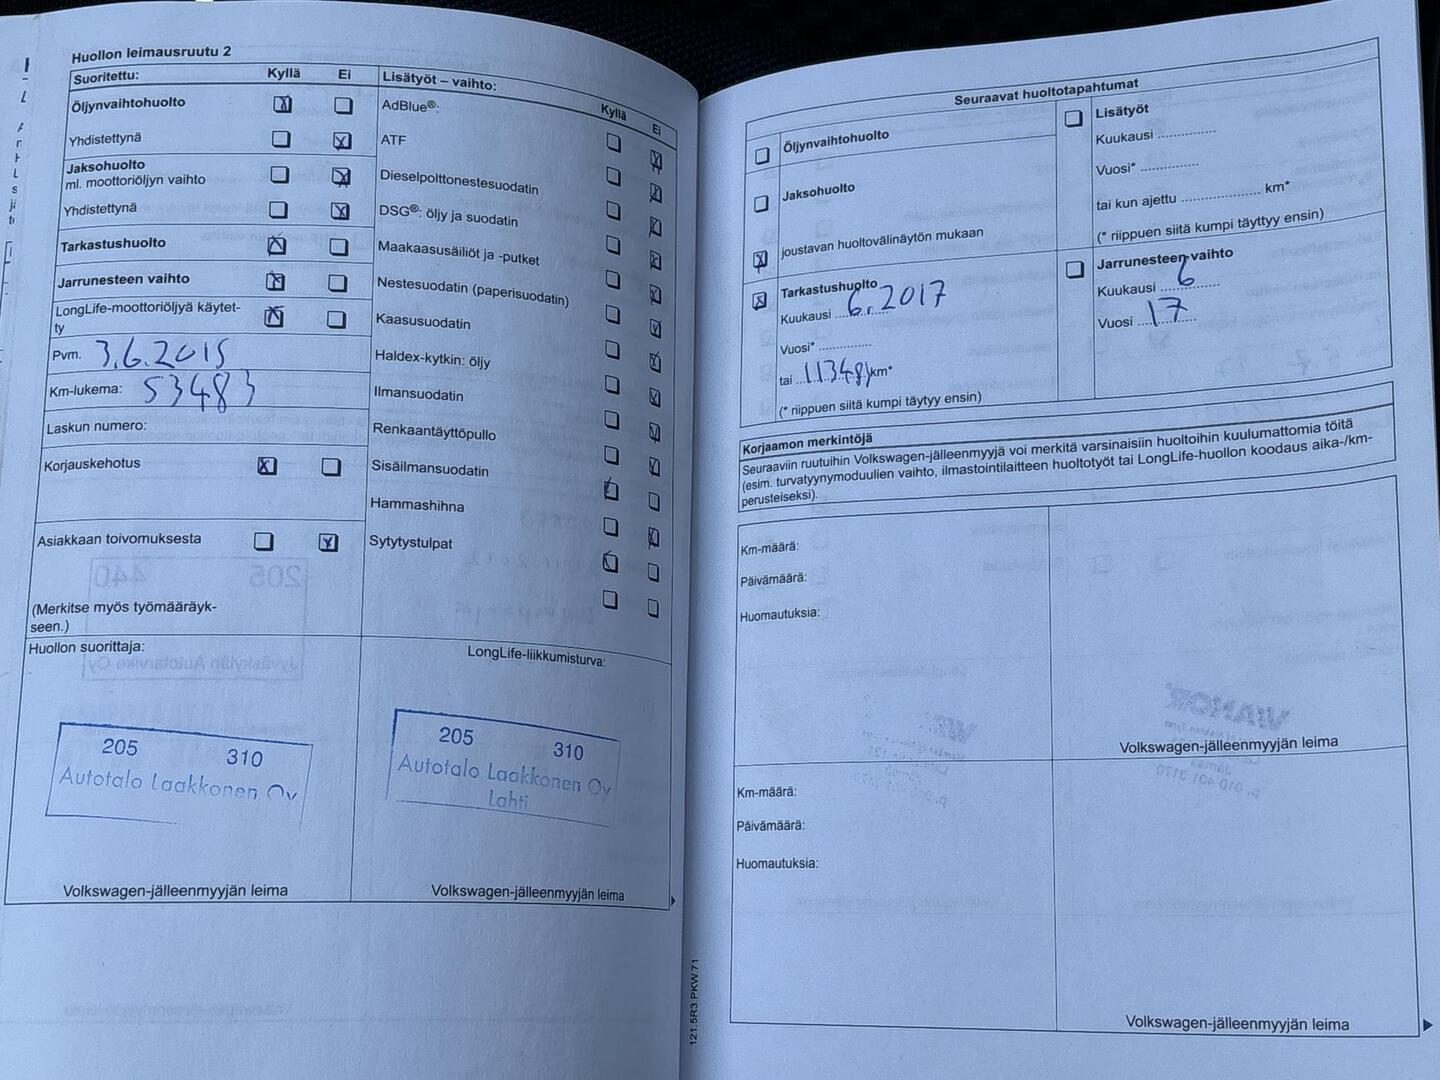 Huollon leimausruutu 2
Suoritettu: Kyllä Ei
Öljynvaihtohuolto
Yhdistettynä
Jaksohuolto
ml. moottoriöljyn vaihto
Yhdistettynä
Tarkastushuolto
Jarrunesteen vaihto
LongLife-moottoriöljyä käytet-
ty
Pvm. 3.6.2015
Km-lukema: 53483
Laskun numero:
Korjauskehotus
Asiakkaan toivomuksesta
(Merkitse myös työmääräyk-
seen.)
Lisätyöt – vaihto: Kyllä Ei
AdBlue®:
ATF
Dieselpolttonestesuodatin
DSG®: öljy ja suodatin
Maakaasusäiliöt ja -putket
Nestesuodatin (paperisuodatin)
Kaasusuodatin
Haldex-kytkin: öljy
Ilmansuodatin
Renkaantäyttöpullo
Sisäilmansuodatin
Hammashihna
Sytytystulpat
Huollon suorittaja:
205 310
Autotalo Laakkonen Oy
Volkswagen-jälleenmyyjän leima
LongLife-liikkumisturva:
205 310
Autotalo Laakkonen Oy
Lahti
Volkswagen-jälleenmyyjän leima
121.5R3.PKW.71
Seuraavat huoltotapahtumat
Öljynvaihtohuolto
Jaksohuolto
joustavan huoltovälinäytön mukaan
Tarkastushuolto
Kuukausi 6.2017
Vuosi*
tai 113483 km*
(* riippuen siitä kumpi täytyy ensin)
Lisätyöt
Kuukausi
Vuosi*
tai kun ajettu km*
(* riippuen siitä kumpi täyttyy ensin)
Jarrunesteen vaihto
Kuukausi 6
Vuosi 17
Korjaamon merkintöjä
Seuraaviin ruutuihin Volkswagen-jälleenmyyjä voi merkitä varsinaisiin huoltoihin kuulumattomia töitä
(esim. turvatyynymoduulien vaihto, ilmastointilaitteen huoltotyöt tai LongLife-huollon koodaus aika-/km-
perusteiseksi).
Km-määrä:
Päivämäärä:
Huomautuksia:
Volkswagen-jälleenmyyjän leima
Km-määrä:
Päivämäärä:
Huomautuksia:
Volkswagen-jälleenmyyjän leima